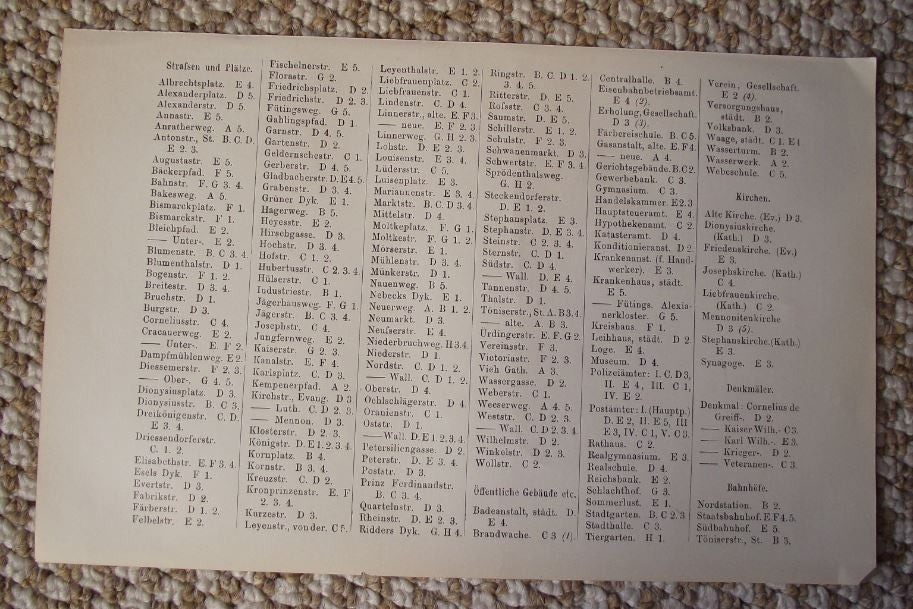 Straſsen und Plätze.
Albrechtsplatz. E 4.
Alexanderplatz. D 5.
Alexanderstr. D 5.
Annastr. E 5.
Anratherweg. A 5.
Antonstr., St. B. C. D.
E 2. 3.
Augustastr. E 5.
Bäckerpfad. F 5.
Bahnstr. F. G 3. 4.
Bakesweg. A 5.
Bismarckplatz. F 1.
Bismarckstr. F 1.
Bleichpfad. E 2.
— Unter-. E 2.
Blumenstr. B. C 3. 4.
Blumenthalstr. D 1.
Bogenstr. F 1. 2.
Breitestr. D 3. 4.
Bruchstr. D 1.
Burgstr. D 3.
Corneliusstr. C 4.
Cracauerweg. E 2.
— Unter-. E. F 2.
Dampfmühlenweg. E 2.
Diessemerstr. F 2. 3.
— Ober-. G 4. 5.
Dionysiusplatz. D 3.
Dionysiusstr. B. C 3.
Dreikönigenstr. C. D.
E 3. 4.
Driessendorferstr.
C. 1. 2.
Elisabethstr. E. F 3. 4.
Esels Dyk. F 1.
Evertstr. D 3.
Fabrikstr. D 2.
Färberstr. D 1. 2.
Felbelstr. E 2.
Fischelnerstr. E 5.
Florastr. G 2.
Friedrichsplatz. D 2.
Friedrichstr. D 2. 3.
Fütingsweg. G 5.
Gahlingspfad. D 1.
Garnstr. D 4. 5.
Gartenstr. D 2.
Geldernschestr. C 1.
Gerberstr. D 4. 5.
Gladbacherstr. D. E 4. 5.
Grabenstr. D 3. 4.
Grüner Dyk. E 1.
Hagerweg. B 5.
Heyesstr. E 2.
Hirschgasse. D 3.
Hochstr. D 3. 4.
Hofstr. C 1. 2.
Hubertusstr. C 2. 3. 4.
Hülserstr. C 1.
Industriestr. B 1.
Jägerhausweg. F. G 1.
Jägerstr. B. C 3. 4.
Josephstr. C 4.
Jungfernweg. E 2.
Kaiserstr. G 2. 3.
Kanalstr. E. F 4.
Karlsplatz. C. D 3.
Kempenerpfad. A 2.
Kirchstr., Evang. D 3.
— Luth. C. D 2. 3.
— Mennon. D 3.
Klosterstr. D 2. 3.
Königstr. D. E 1. 2. 3. 4.
Kornplatz. B 4.
Kornstr. B 3. 4.
Kreuzstr. C. D 2.
Kronprinzenstr. E. F
2. 3. 4.
Kurzestr. D 3.
Leyenstr., von der. C 5.
Leyenthalstr. E 1. 2.
Liebfrauenplatz. C 2.
Liebfrauenstr. C 1.
Lindenstr. C. D 4.
Linnerstr., alte. E. F 3.
— neue. E. F 2. 3
Linnerweg. G. H 2. 3.
Lohstr. D. E 2. 3.
Louisenstr. E 3. 4.
Lüderstr. C 5.
Luisenplatz. E 3.
Mariannenstr. E 3. 4.
Marktstr. B. C. D 3. 4.
Mittelstr. D 4.
Moltkeplatz. F. G 1.
Moltkestr. F. G 1. 2.
Moraerstr. E 1.
Mühlenstr. D 3. 4.
Münkerstr. D 1.
Nauenweg. B 5.
Nebecks Dyk. E 1.
Neuerweg. A. B 1. 2.
Neumarkt. D 3.
Neuſserstr. E 4.
Niederbruchweg. H 3. 4.
Niederstr. D 1.
Nordstr. C. D 1. 2.
— Wall. C. D 1. 2.
Oberstr. D 4.
Oehlschlägerstr. D 4.
Oranienstr. C 1.
Oststr. D 1.
— Wall. D. E 1. 2. 3. 4.
Petersiliengasse. D 2.
Peterstr. D. E 3. 4.
Poststr. D 3.
Prinz Ferdinandstr.
B. C 3. 4.
Quartelnstr. D 3.
Rheinstr. D. E 2. 3.
Ridders Dyk. G. H 4.
Ringstr. B. C. D 1. 2.
3. 4. 5.
Ritterstr. D. E 5.
Roſsstr. C 3. 4.
Saumstr. D. E 5.
Schillerstr. E 1. 2.
Schulstr. F 2. 3.
Schwanenmarkt. D 3.
Schwertstr. E. F 3. 4.
Sprödenthalsweg.
G. H 2.
Steckendorferstr.
D. E 1. 2.
Stephansplatz. E 3.
Stephanstr. D. E 3. 4.
Steinstr. C 2. 3. 4.
Sternstr. C. D 1.
Südstr. C. D 4.
— Wall. D. E 4.
Tannenstr. D 4. 5.
Thalstr. D 1.
Töniserstr., St. A. B 3. 4.
— alte. A. B 3.
Urdingerstr. E. F. G 2.
Vereinsstr. F 3.
Victoriastr. F 2. 3.
Vieh Gath. A 3.
Wassergasse. D 2.
Weberstr. C 1.
Weeserweg. A 4. 5.
Weststr. C. D 2. 3.
— Wall. C. D 2. 3. 4.
Wilhelmstr. D 2.
Winkelstr. D 2. 3.
Wollstr. C 2.
Öffentliche Gebäude etc.
Badeanstalt, städt. D.
E 4.
Brandwache. C 3 (1).
Centralhalle. B 4.
Eisenbahnbetriebsamt.
E 4 (2).
Erholung, Gesellschaft.
D 3 (3).
Färbereischule. B. C 5.
Gasanstalt, alte. E. F 4.
— neue. A 4.
Gerichtsgebäude. B. C 2.
Gewerbebank. C 3.
Gymnasium. C 3.
Handelskammer. E 2. 3
Hauptsteueramt. E 4.
Hypothekenamt. C 2.
Katasteramt. D 4.
Konditionieranst. D 2.
Krankenanst. (f. Hand-
werker). E 3.
Krankenhaus, städt.
E 5.
— Fütings. Alexia-
nerkloster. G 5.
Kreishaus. F 1.
Leihhaus, städt. D 2.
Loge. E 4.
Museum. D 4.
Polizeiämter: I. C. D 3,
II. E 4, III. C 1,
IV. E 2.
Postämter: I. (Hauptp.)
D. E 2, II. E 5, III
E 3, IV. C 1, V. C 3.
Rathaus. C 2.
Realgymnasium. E 3.
Realschule. D 4.
Reichsbank. E 2.
Schlachthof. G 3.
Sommerlust. E 1.
Stadtgarten. B. C 2. 3
Stadthalle. C 3.
Tiergarten. H 1.
Verein, Gesellschaft.
E 2 (4).
Versorgungshaus,
städt. B 2.
Volksbank. D 3.
Waage, städt. C 1. E 4
Wasserturm. B 2.
Wasserwerk. A 2.
Webeschule. C 5.
Kirchen.
Alte Kirche. (Ev.) D 3.
Dionysiuskirche.
(Kath.) D 3.
Friedenskirche. (Ev.)
E 3.
Josephskirche. (Kath.)
C 4.
Liebfrauenkirche.
(Kath.) C 2.
Mennonitenkirche
D 3 (5).
Stephanskirche. (Kath.)
E 3.
Synagoge. E 3.
Denkmäler.
Denkmal: Cornelius de
Greiff-. D 2.
— Kaiser Wilh.-. C 3.
— Karl Wilh.-. E 3.
— Krieger-. D 2.
— Veteranen-. C 3.
Bahnhöfe.
Nordstation. B 2.
Staatsbahnhof. E. F 4. 5.
Südbahnhof. E 5.
Töniserstr., St. B 3.